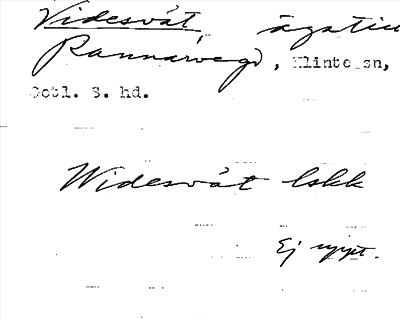 Videsvät, ägatin
Rannarvegd, Klinte sn,
Gotl. S. hd.
Widesvät lskk
Ej uppt.